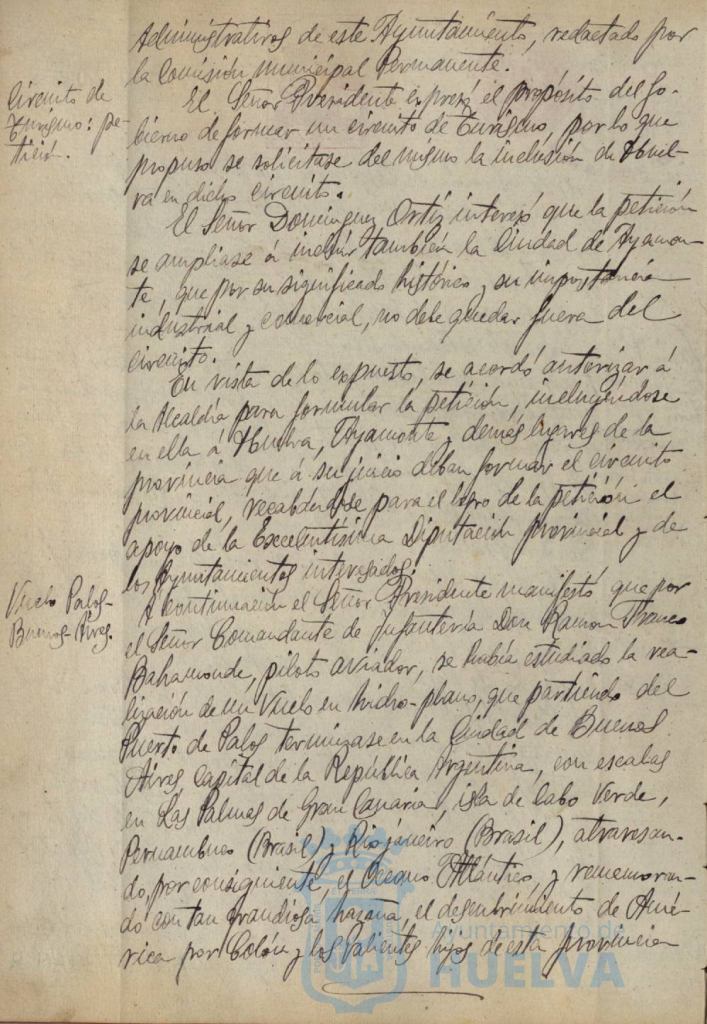 Administrativos de este Ayuntamiento, redactado por
la Comisión municipal Permanente.
Circuito de
Turismo: pe-
tición.
El Señor Presidente expresó el propósito del Go-
bierno de formar un circuito de Turismo, por lo que
propuso se solicitase del mismo la inclusión de Huel-
va en dicho circuito.
El Señor Dominguez Ortiz interesó que la petición
se ampliase á incluir tambien la Ciudad de Ayamon-
te, que por su significado histórico y su importancia
industrial y comercial, no debe quedar fuera del
circuito.
En vista de lo expuesto, se acordó autorizar á
la Alcaldía para formular la petición, incluyéndose
en ella á Huelva, Ayamonte y demás lugares de la
provincia que á su juicio deban formar el circuito
provincial, recabándose para el logro de la petición el
apoyo de la Excelentísima Diputación provincial y de
los Ayuntamientos interesados.
Vuelo Palos-
Buenos-Aires.
A continuación el Señor Presidente manifestó que por
el Señor Comandante de Infantería Don Ramon Franco
Bahamonde, piloto aviador, se había estudiado la rea-
lización de un Vuelo en hidro-plano, que partiendo del
Puerto de Palos terminase en la Ciudad de Buenos
Aires capital de la República Argentina, con escalas
en Las Palmas de Gran Canaria, isla de Cabo Verde,
Pernambuco (Brasil) y Riojaneiro (Brasil), atravesan-
do, por consiguiente, el Oceano Atlántico y rememoran-
do con tan grandiosa hazaña, el descubrimiento de Amé-
rica por Colón y los valientes hijos de esta provincia
Ayuntamiento de
HUELVA